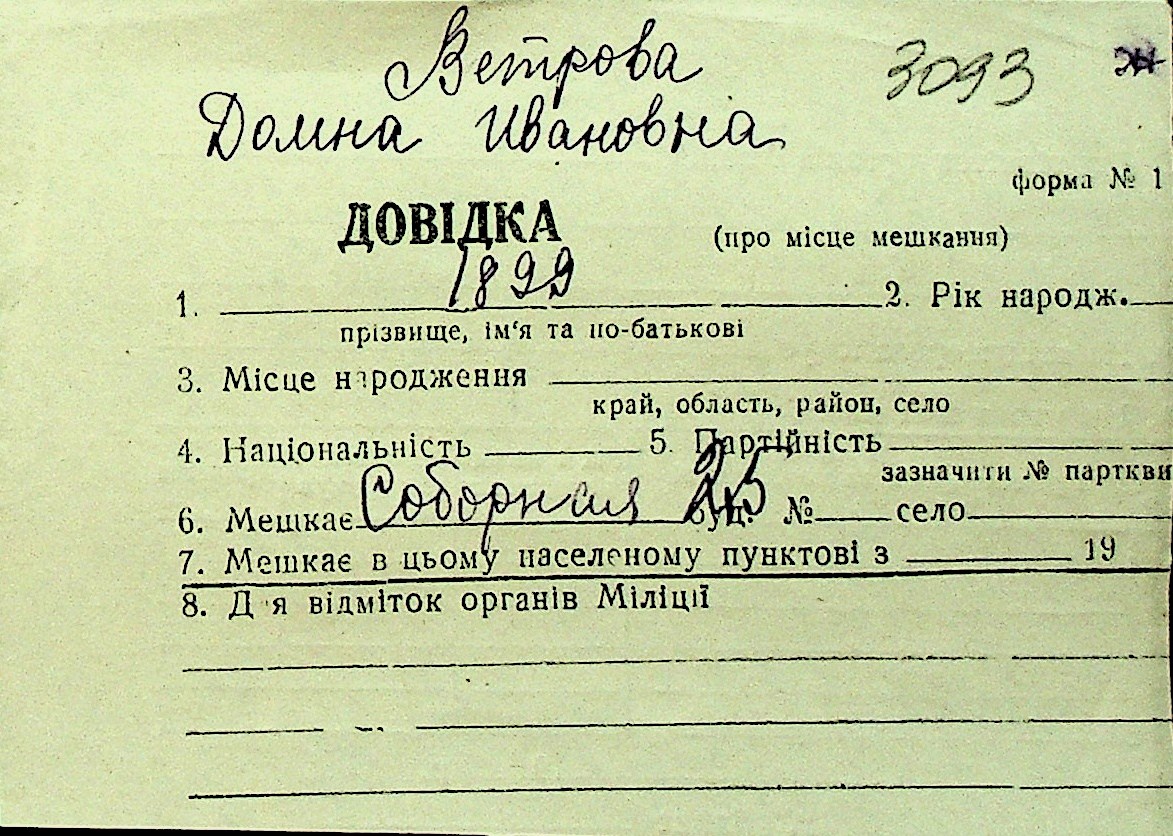 Ветрова 3093
Домна Ивановна
форма № 1
ДОВІДКА (про місце мешкання)
1899
1. 2. Рік народж.
прізвище, ім'я та по-батькові
3. Місце народження
край, область, район, село
4. Національність 5. Партійність
зазначити № парткви
6. Мешкає Соборная 25 буд. № село
7. Мешкає в цьому населеному пунктові з 19
8. Для відміток органів Міліції